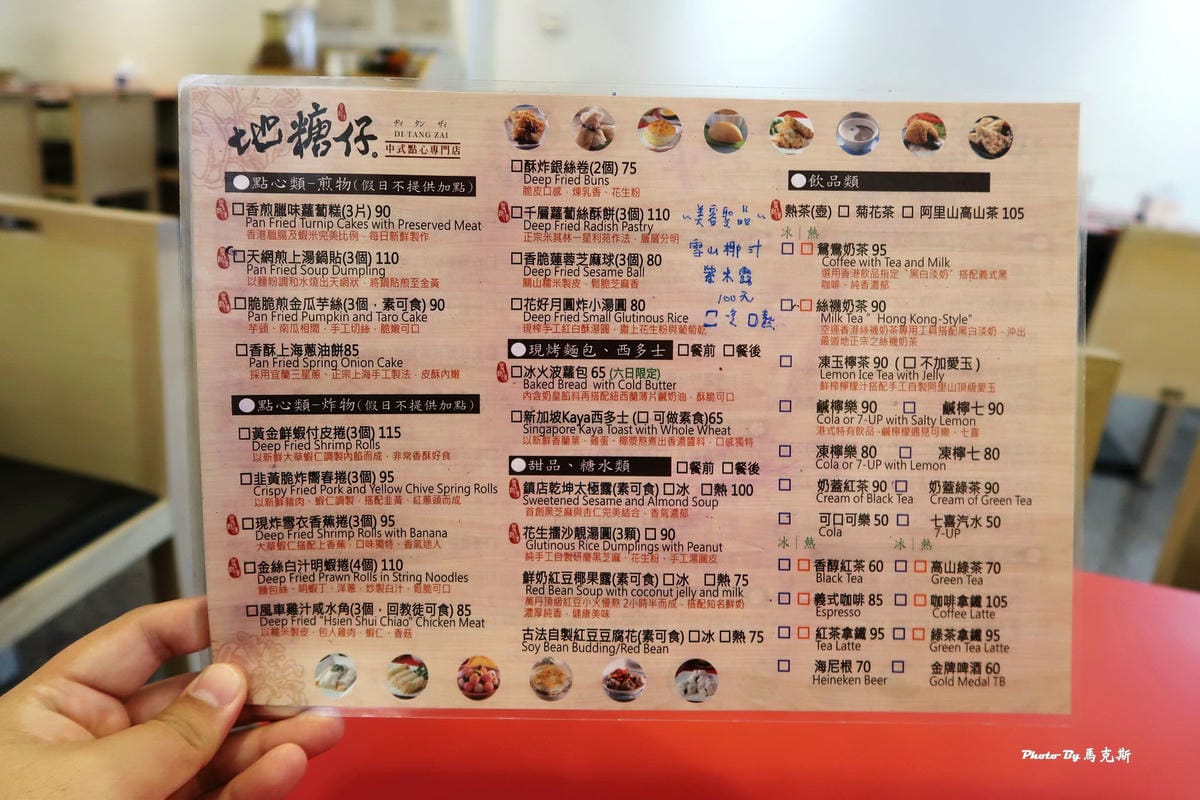 地糖仔
ディ タン ザィ
DI TANG ZAI
中式點心專門店
點心類-煎物(假日不提供加點)
香煎臘味蘿蔔糕(3片) 90
Pan Fried Turnip Cakes with Preserved Meat
香港臘腸及蝦米完美比例，每日新鮮製作
天網煎上湯鍋貼(3個) 110
Pan Fried Soup Dumpling
以麵粉調和水燒出天網狀，將鍋貼煎至金黃
脆脆煎金瓜芋絲(3個，素可食) 90
Pan Fried Pumpkin and Taro Cake
芋頭、南瓜相間，手工切絲，脆嫩可口
香酥上海蔥油餅85
Pan Fried Spring Onion Cake
採用宜蘭三星蔥、正宗上海手工製法，皮酥內嫩
點心類-炸物(假日不提供加點)
黃金鮮蝦付皮捲(3個) 115
Deep Fried Shrimp Rolls
以新鮮大草蝦仁調製內餡而成，非常香酥好食
韭黃脆炸嚮春捲(3個) 95
Crispy Fried Pork and Yellow Chive Spring Rolls
以新鮮豬肉、蝦仁調製，搭配韭黃、紅蔥頭而成
現炸雪衣香蕉捲(3個) 95
Deep Fried Shrimp Rolls with Banana
大草蝦仁搭配上香蕉，口味獨特、香氣迷人
金絲白汁明蝦捲(4個) 110
Deep Fried Prawn Rolls in String Noodles
麵包絲、明蝦丁、洋蔥，炒製白汁，鬆脆可口
風車雞汁咸水角(3個，回教徒可食) 85
Deep Fried "Hsien Shui Chiao" Chicken Meat
以糯米製皮，包入雞肉、蝦仁、香菇
酥炸銀絲卷(2個) 75
Deep Fried Buns
脆皮口感、煉乳香、花生粉
千層蘿蔔絲酥餅(3個) 110
Deep Fried Radish Pastry
正宗米其林一星利苑作法，層層分明
香脆蓮蓉芝麻球(3個) 80
Deep Fried Sesame Ball
關山糯米製皮，鬆脆芝麻香
花好月圓炸小湯圓 80
Deep Fried Small Glutinous Rice
現榨手工紅白酥湯圓，撒上花生粉與葡萄乾
美容聖品
雪山椰汁
紫米露
100元
冷 熱
現烤麵包、西多士 餐前 餐後
冰火波蘿包 65 (六日限定)
Baked Bread with Cold Butter
內含奶皇餡料再搭配紐西蘭薄片鹹奶油，酥脆可口
新加坡Kaya西多士 (可做素食)65
Singapore Kaya Toast with Whole Wheat
以新鮮香蘭葉、雞蛋、椰漿熬煮出香濃醬料，口感獨特
甜品、糖水類 餐前 餐後
鎮店乾坤太極露(素可食) 冰 熱 100
Sweetened Sesame and Almond Soup
首創黑芝麻與杏仁完美結合，香氣濃郁
花生擂沙靚湯圓(3顆) 90
Glutinous Rice Dumplings with Peanut
純手工自製研磨黑芝麻、花生粉、手工湯圓皮
鮮奶紅豆椰果露(素可食) 冰 熱 75
Red Bean Soup with coconut jelly and milk
萬丹頂級紅豆小火慢熬 2小時半而成，搭配知名鮮奶
濃厚純香，健康美味
古法自製紅豆豆腐花(素可食) 冰 熱 75
Soy Bean Budding/Red Bean
飲品類
熱茶(壺) 菊花茶 阿里山高山茶 105
冰 | 熱
鴛鴦奶茶 95
Coffee with Tea and Milk
選用香港飲品指定"黑白淡奶"搭配義式黑
咖啡，純香濃郁
絲襪奶茶 90
Milk Tea " Hong Kong-Style"
空運香港絲襪奶茶專用工具搭配黑白淡奶，沖出
最道地正宗之絲襪奶茶
凍玉檸茶 90 ( 不加愛玉 )
Lemon Ice Tea with Jelly
鮮榨檸檬汁搭配手工自製阿里山頂級愛玉
鹹檸樂 90 鹹檸七 90
Cola or 7-UP with Salty Lemon
港式特有飲品，鹹檸檬遇見可樂、七喜
凍檸樂 80 凍檸七 80
Cola or 7-UP with Lemon
奶蓋紅茶 90 奶蓋綠茶 90
Cream of Black Tea Cream of Green Tea
可口可樂 50 七喜汽水 50
Cola 7-UP
冰 | 熱 冰 | 熱
香醇紅茶 60 高山綠茶 70
Black Tea Green Tea
義式咖啡 85 咖啡拿鐵 105
Espresso Coffee Latte
紅茶拿鐵 95 綠茶拿鐵 95
Tea Latte Green Tea Latte
海尼根 70 金牌啤酒 60
Heineken Beer Gold Medal TB
Photo By 馬克斯